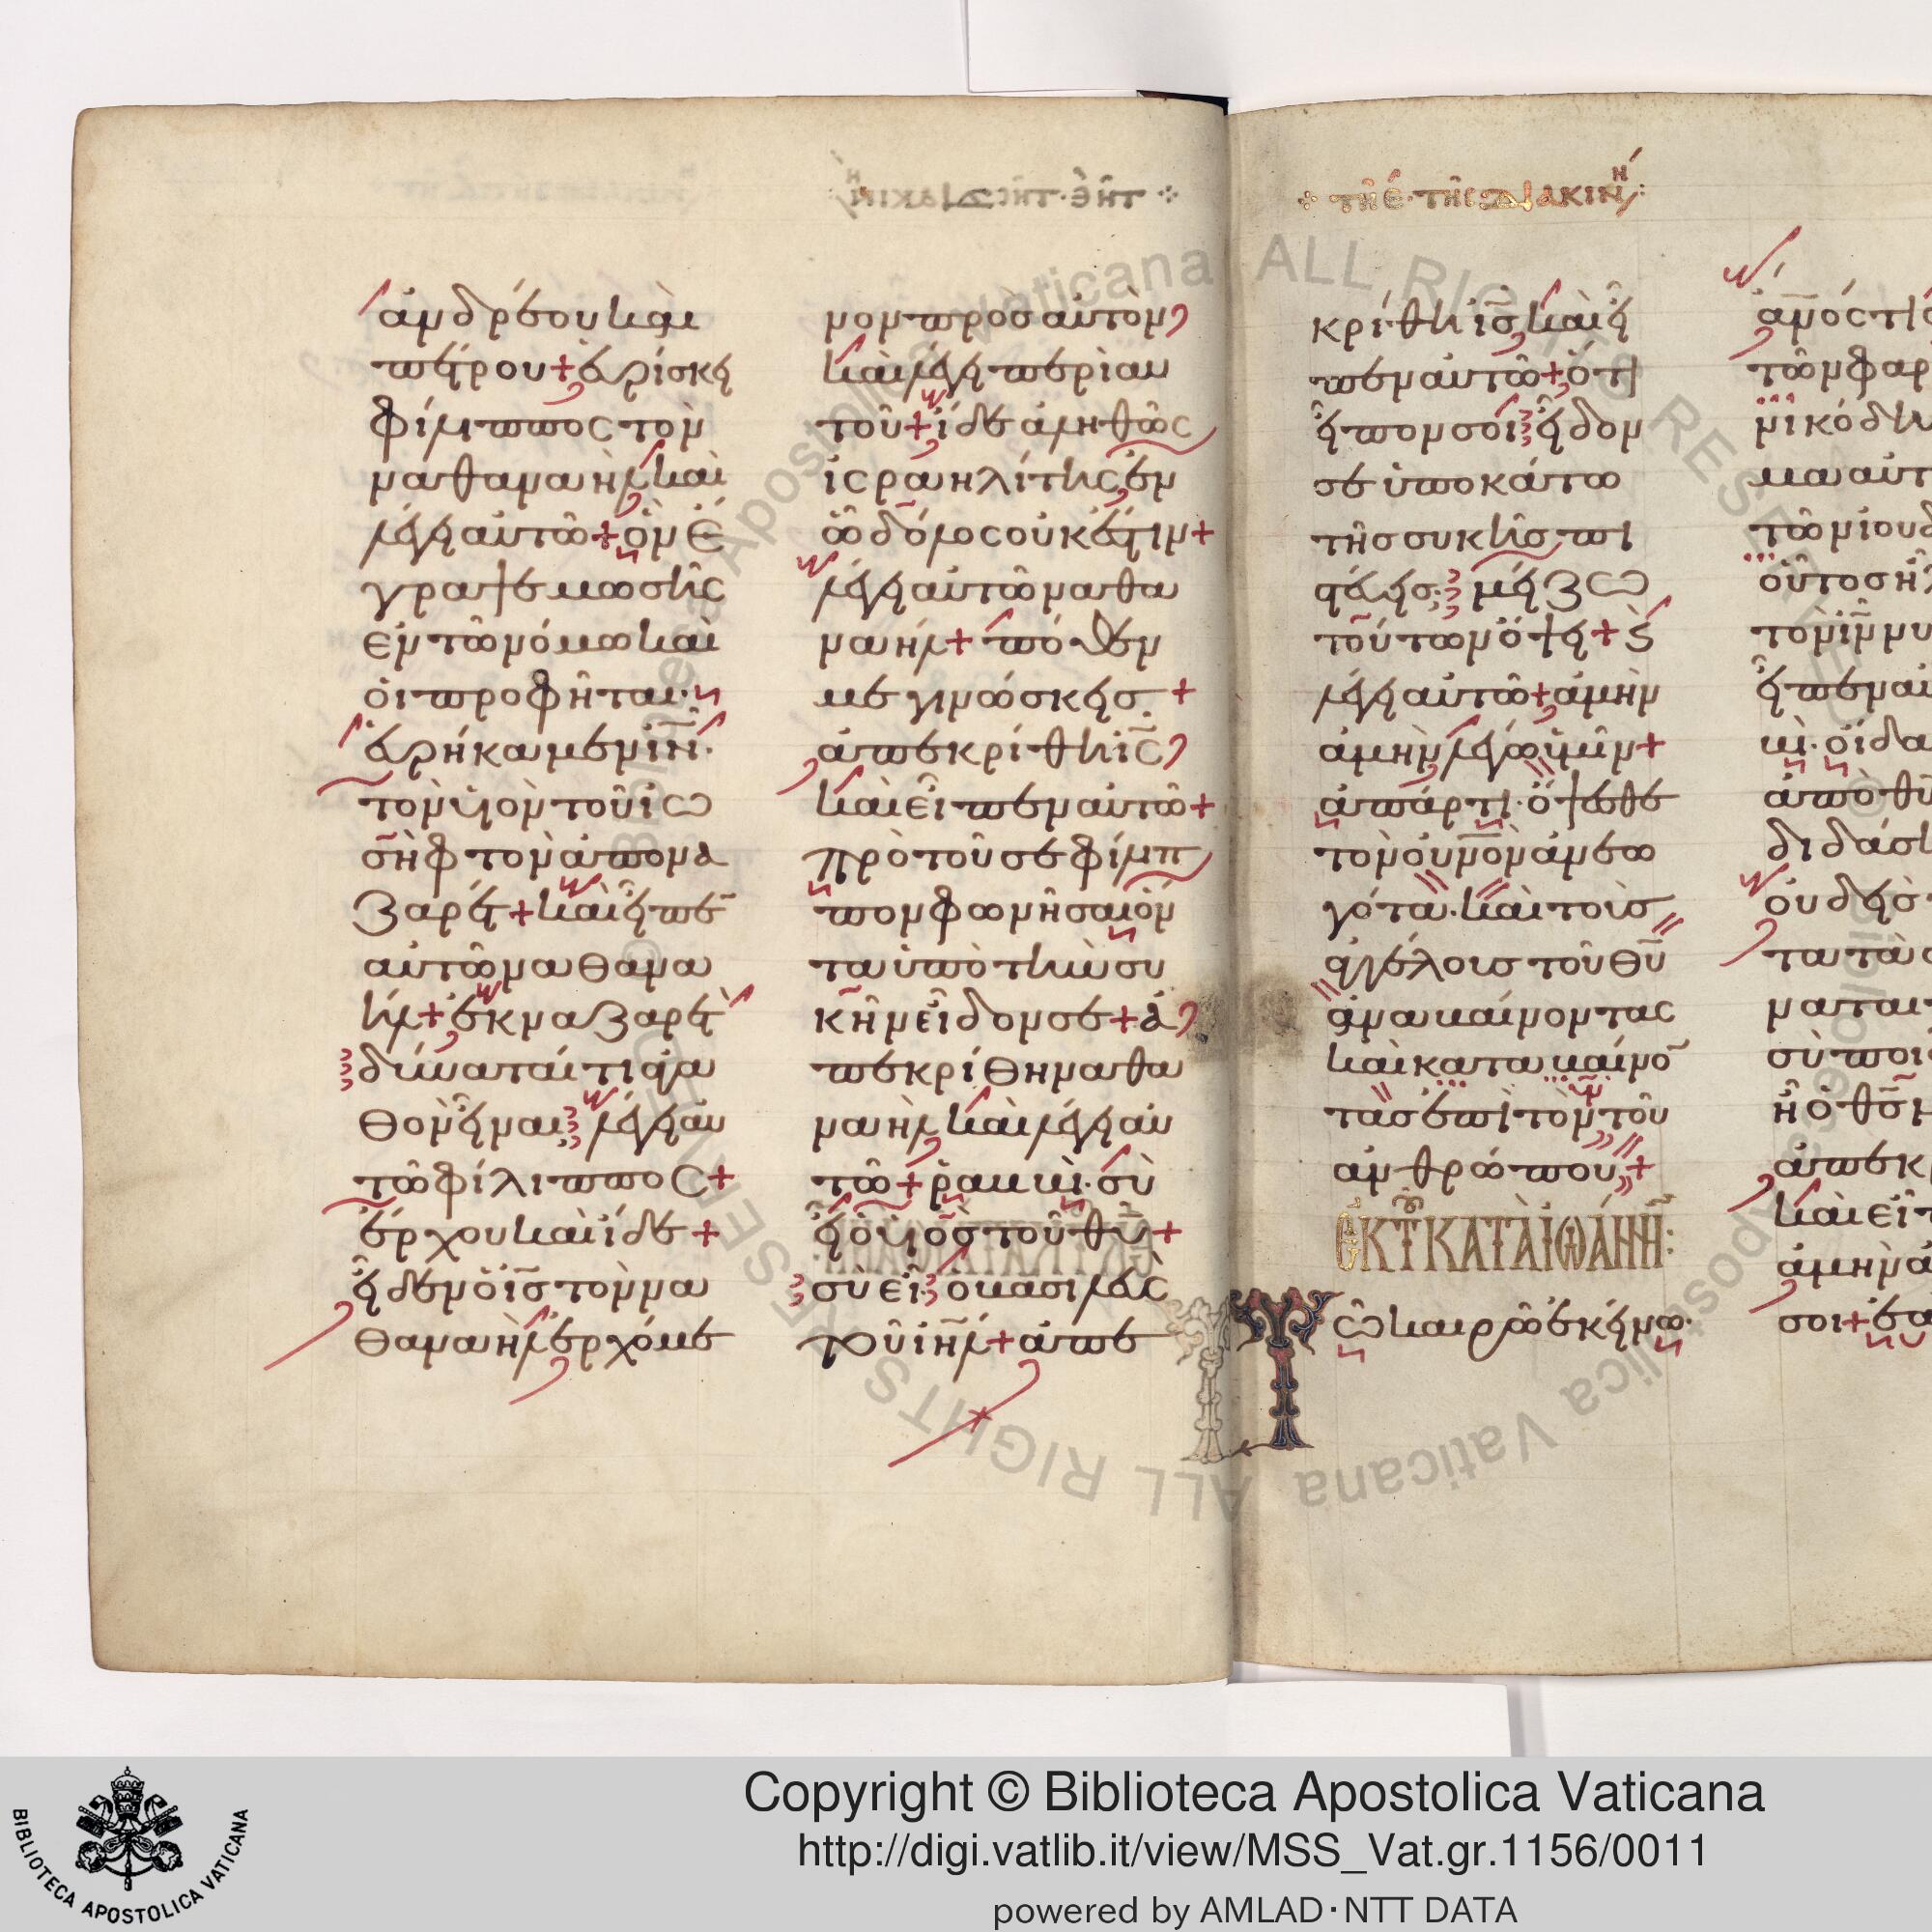 ἀνδρέου καὶ
πέτρου + εὑρίσκει
φίλιππος τὸν
ναθαναὴλ καὶ
λέγει αὐτῶ + ὃν ἔ
γραψε μωσῆς
ἐν τῶ νόμω καὶ
οἱ προφῆται·
εὑρήκαμεν ἰν·
τὸν υἱὸν τοῦ ἰω
σὴφ τὸν ἀπὸ να
ζαρέτ + καὶ εἶπε
αὐτῶ ναθανα
ήλ + ἐκ ναζαρὲτ
δύναταί τι ἀγα
θὸν εἶναι· λέγει αὐ
τῶ φίλιππος +
ἔρχου καὶ ἴδε +
εἶδεν ὁ ις τὸν να
θαναὴλ ἐρχόμε
νον πρὸσ αὐτὸν
καὶ λέγει περὶ αυ
τοῦ + ἴδε ἀληθῶς
ἰσραηλίτης ἐν
ὧ δόλος οὐκ ἔστιν +
λέγει αὐτῶ ναθα
ναήλ + πόθεν
με γινώσκεισ +
ἀπεκρίθη ις
καὶ εἶπεν αὐτῶ +
πρὸ τοῦ σε φίλιπ
πον φωνῆσαι ὄν
τα ὑπὸ τὴν συ
κῆν εἶδον σε + ἀ
πεκρίθη ναθα
ναὴλ καὶ λέγει αὐ
τῶ + ῥαββί· σὺ
εἶ ὁ υἱὸς τοῦ θυ +
σὺ εἶ ὁ βασιλεὺς
τοῦ ιηλ + ἀπε
τῆ ε· τῆς διακινη
κρίθη ις καὶ εἶ
πεν αὐτῶ + ὅτι
εἶπον σοι εἶδον
σε ὑποκάτω
τῆσ συκῆσ πι
στεύεισ· μείζω
τούτων ὄψει + κ
λέγει αὐτῶ + ἀμὴν
ἀμὴν λέγω ὑμῖν +
ἀπάρτι· ὄψεσθε
τὸν ουνον ἀνεω
γότα· καὶ τοὺσ
ἀγγέλουσ τοῦ θυ
ἀναβαίνοντας
καὶ καταβαίνο
τασ ἐπὶ τὸν υν τοῦ
ἀνθρώπου +
ἐκ τοῦ κατὰ ἰωάννην:
Τῶ καιρῶ ἐκείνω·
Copyright © Biblioteca Apostolica Vaticana
http://digi.vatlib.it/view/MSS_Vat.gr.1156/0011
powered by AMLAD·NTT DATA
BIBLIOTECA APOSTOLICA VATICANA